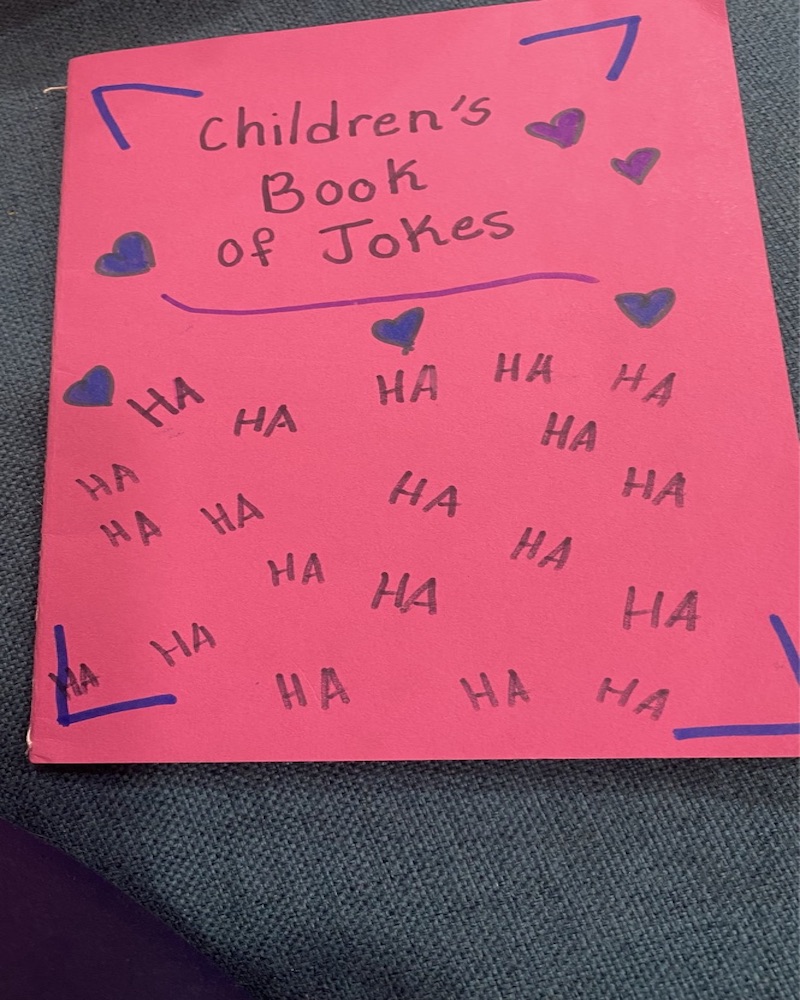 Children's
Book
of Jokes
HA HA HA HA HA
HA
HA HA HA
HA HA HA
HA HA HA
HA
HA HA HA HA